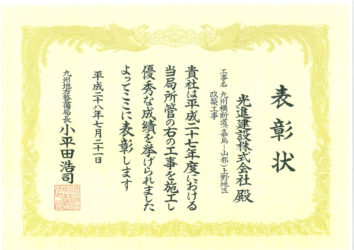 表彰状
光進建設株式会社 殿
工事名 九州横断道(嘉島~山都)上野地区
改築工事
貴社は平成二十七年度における
当局所管の右の工事を施工し
優秀な成績を挙げられました
よってここに表彰します
平成二十八年七月二十一日
九州地方整備局長 小平田浩司